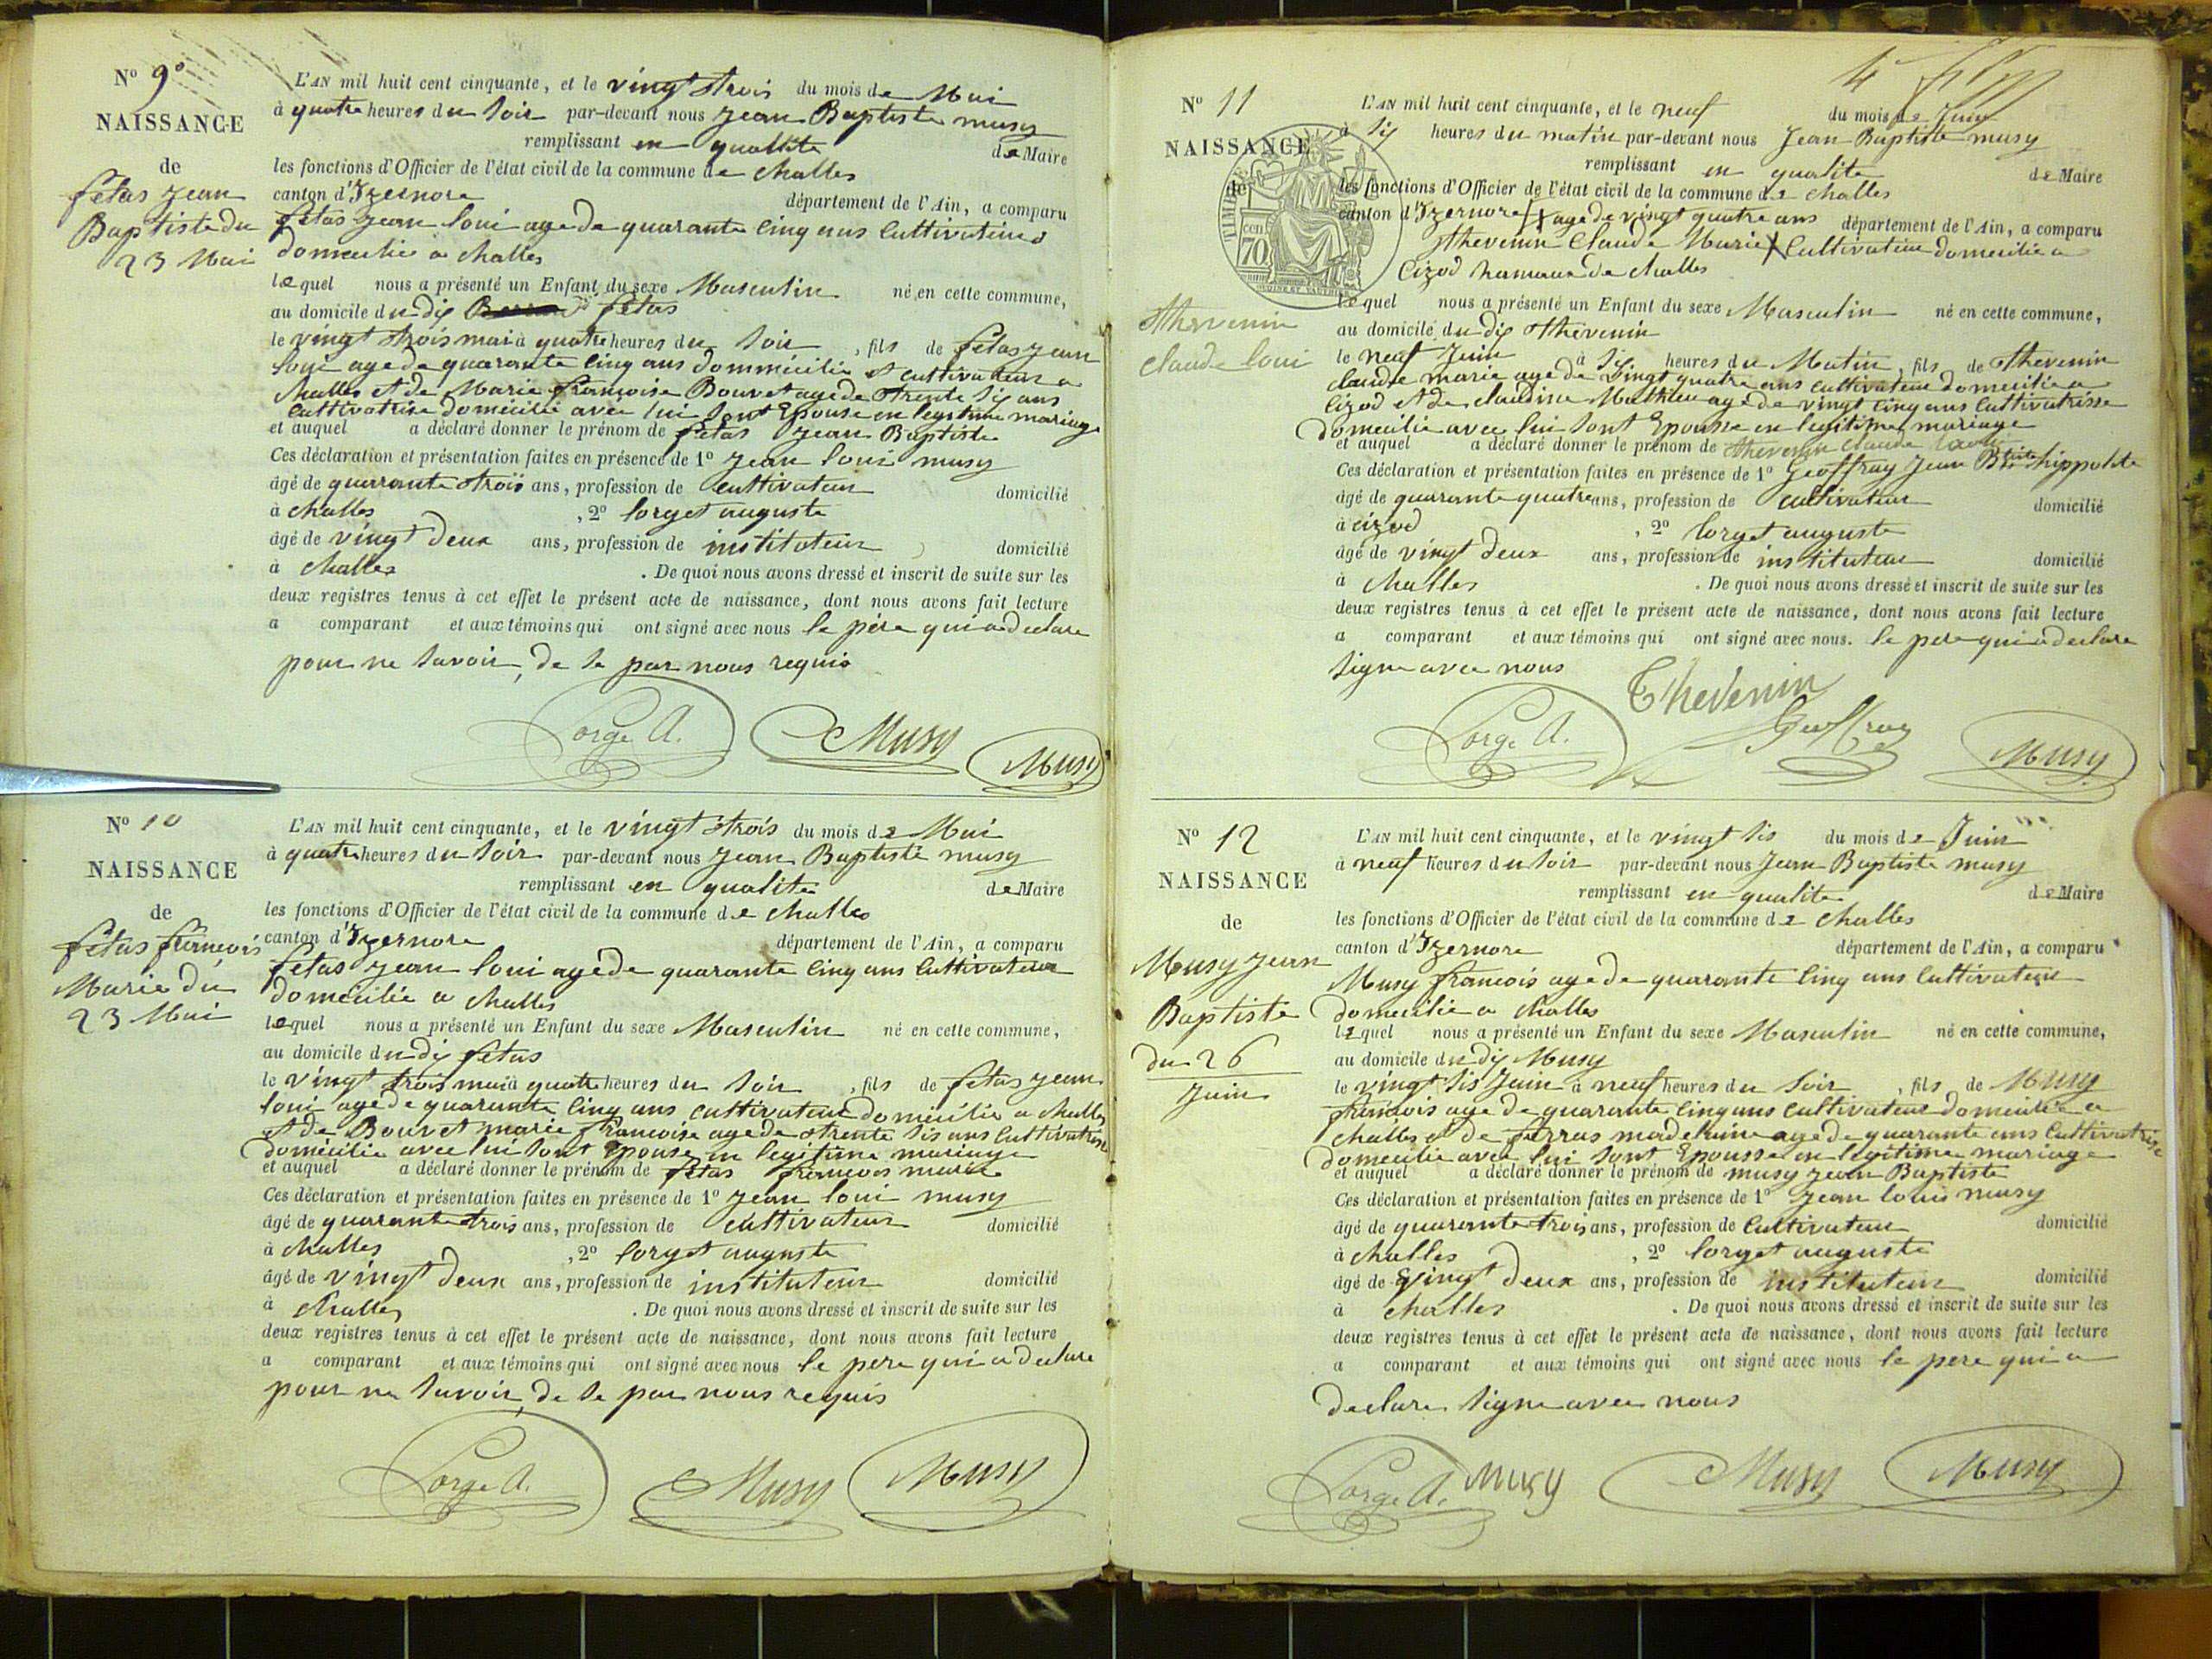 N° 9°
NAISSANCE
de
fetas jean
Baptiste du
23 Mai
L'AN mil huit cent cinquante, et le vingt trois du mois de Mai
à quatre heures du soir par-devant nous jean Baptiste musy
remplissant en quallité de Maire
les fonctions d'Officier de l'état civil de la commune de challes
canton d'Izernore département de l'Ain, a comparu
fetas jean loui age de quarante cinq ans cultivateur
domicilié a challes
lequel nous a présenté un Enfant du sexe Masculin né en cette commune,
au domicile du dis fetas
le vingt trois mai à quatre heures du soir, fils de fetas jean
loui age de quarante cinq ans dommicilie et cultivateur a
challes et de Marie francoise Bouvet age de trente sis ans
cultivatrise domicilié avec lui sont Epouse en legitime mariage
et auquel a déclaré donner le prénom de fetas jean Baptiste
Ces déclaration et présentation faites en présence de 1° jean loui musy
âgé de quarante trois ans, profession de cultivateur domicilié
à challes, 2° lorget auguste
âgé de vingt deux ans, profession de instituteur domicilié
à challes. De quoi nous avons dressé et inscrit de suite sur les
deux registres tenus à cet effet le présent acte de naissance, dont nous avons fait lecture
a comparant et aux témoins qui ont signé avec nous le père qui a declare
pour ne savoir, de se par nous requis
Lorge A. Musy Musy
N° 10
NAISSANCE
de
fetas francois
Marie du
23 Mai
L'AN mil huit cent cinquante, et le vingt trois du mois de Mai
à quatre heures du soir par-devant nous jean Baptiste musy
remplissant en qualite de Maire
les fonctions d'Officier de l'état civil de la commune de challes
canton d'Izernore département de l'Ain, a comparu
fetas jean loui age de quarante cinq ans cultivateur
domicilie a challes
lequel nous a présenté un Enfant du sexe Masculin né en cette commune,
au domicile du dis fetas
le vingt trois mai à quatre heures du soir, fils de fetas jean
loui age de quarante cinq ans cultivateur domicilie a challes
et de Bouvet marie francoise age de trente sis ans cultivatrise
domicilie avec lui sont Epouse en legitime mariage
et auquel a déclaré donner le prénom de fetas francois marie
Ces déclaration et présentation faites en présence de 1° jean loui musy
âgé de quarante trois ans, profession de cultivateur domicilié
à challes, 2° lorget auguste
âgé de vingt deux ans, profession de instituteur domicilié
à challes. De quoi nous avons dressé et inscrit de suite sur les
deux registres tenus à cet effet le présent acte de naissance, dont nous avons fait lecture
a comparant et aux témoins qui ont signé avec nous le pere qui a declare
pour ne savoir, de se par nous requis
Lorge A. Musy Musy
4
N° 11
NAISSANCE
de
thevenin
claude loui
TIMBRE
70
cen
L'AN mil huit cent cinquante, et le neuf du mois de Juin
à sis heures du matin par-devant nous Jean Baptiste musy
remplissant en qualite de Maire
les fonctions d'Officier de l'état civil de la commune de challes
canton d'Izernore age de vingt quatre ans département de l'Ain, a comparu
thevenin Claude Marie cultivateur domicilie a
Cizod hamaux de challes
lequel nous a présenté un Enfant du sexe Masculin né en cette commune,
au domicile du dis thevenin
le neuf Juin à sis heures du Matin, fils de thevenin
claude marie age de vingt quatre ans cultivateur domicilie a
cizod et de claudine Mathieu age de vingt cinq ans cultivatrisse
domicilie avec lui sont Epousse en legitime mariage
et auquel a déclaré donner le prénom de thevenin claude loui
Ces déclaration et présentation faites en présence de 1° Geoffray Jean Btiste hippolite
âgé de quarante quatre ans, profession de cultivateur domicilié
à cizod, 2° lorget auguste
âgé de vingt deux ans, profession de instituteur domicilié
à challes. De quoi nous avons dressé et inscrit de suite sur les
deux registres tenus à cet effet le présent acte de naissance, dont nous avons fait lecture
a comparant et aux témoins qui ont signé avec nous. le pere qui a declare
signe avec nous
Thevenin
Lorge A. Geoffray Musy
N° 12
NAISSANCE
de
Musy jean
Baptiste
du 26
Juin
L'AN mil huit cent cinquante, et le vingt sis du mois de Juin
à neuf heures du soir par-devant nous Jean Baptiste musy
remplissant en qualite de Maire
les fonctions d'Officier de l'état civil de la commune de challes
canton d'Izernore département de l'Ain, a comparu
Musy francois age de quarante cinq ans cultivateur
domicilie a challes
lequel nous a présenté un Enfant du sexe Masculin né en cette commune,
au domicile du dis Musy
le vingt sis Juin à neuf heures du soir, fils de Musy
francois age de quarante cinq ans cultivateur domicilie a
challes et de ferras madelaine age de quarante ans cultivatrise
domicilie avec lui sont Epousse en legitime mariage
et auquel a déclaré donner le prénom de musy jean Baptiste
Ces déclaration et présentation faites en présence de 1° jean louis musy
âgé de quarante trois ans, profession de cultivateur domicilié
à challes, 2° lorget auguste
âgé de vingt deux ans, profession de instituteur domicilié
à challes. De quoi nous avons dressé et inscrit de suite sur les
deux registres tenus à cet effet le présent acte de naissance, dont nous avons fait lecture
a comparant et aux témoins qui ont signé avec nous le pere qui a
declare signe avec nous
Lorge A. Musy Musy Musy